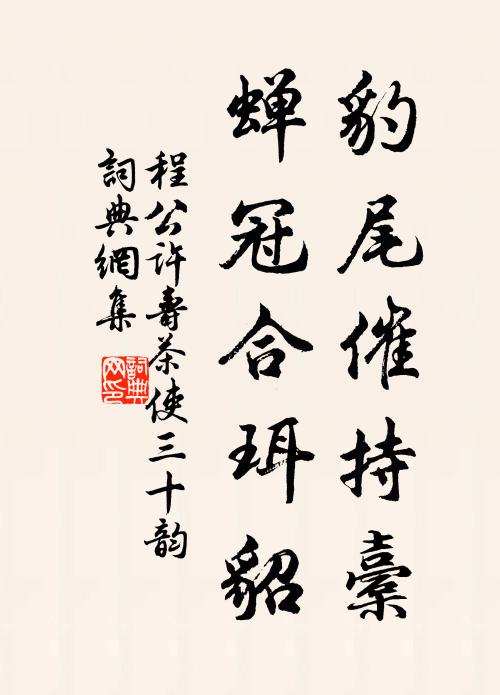 豹尾催持橐
蝉冠合珥貂
程公许壽茶使三十韵
詞典網集
詞典网印